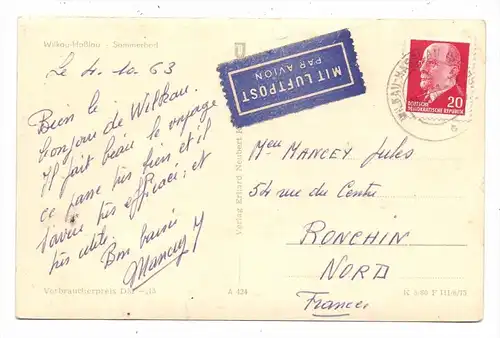 Wilkau-Haßlau : Sommerbad
Le 4.10.63
Bien le
bonjour de Wilkau.
Il fait beau le voyage
ce passe très bien et il
s'avère très efficace; et
très utile.
Bon baiser
Mancey
MIT LUFTPOST
PAR AVION
WILKAU-HASSLAU
DEUTSCHE
DEMOKRATISCHE REPUBLIK
20
Verlag Erhard Neubert
Mancey Jules
54 rue du Centre
RONCHIN
NORD
France
Verbraucherpreis DM -,15
A 424